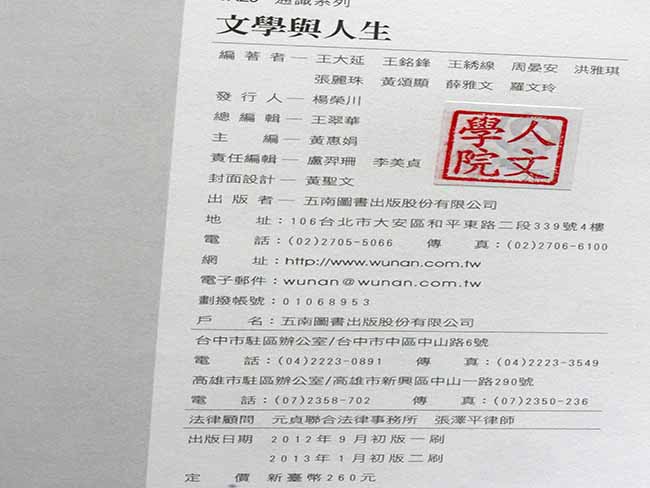 通識系列
文學與人生
編著者－王大延 王銘鋒 王綉線 周晏安 洪雅琪
張麗珠 黃頌顯 薛雅文 羅文玲
發行人－楊榮川
總編輯－王翠華
主編－黃惠娟
責任編輯－盧羿珊 李美貞
封面設計－黃聖文
人文學院
出版者－五南圖書出版股份有限公司
地址：106台北市大安區和平東路二段339號4樓
電話：(02)2705-5066 傳真：(02)2706-6100
網址：http://www.wunan.com.tw
電子郵件：wunan@wunan.com.tw
劃撥帳號：01068953
戶名：五南圖書出版股份有限公司
台中市駐區辦公室/台中市中區中山路6號
電話：(04)2223-0891 傳真：(04)2223-3549
高雄市駐區辦公室/高雄市新興區中山一路290號
電話：(07)2358-702 傳真：(07)2350-236
法律顧問 元貞聯合法律事務所 張澤平律師
出版日期 2012年9月初版一刷
2013年1月初版二刷
定價 新臺幣260元